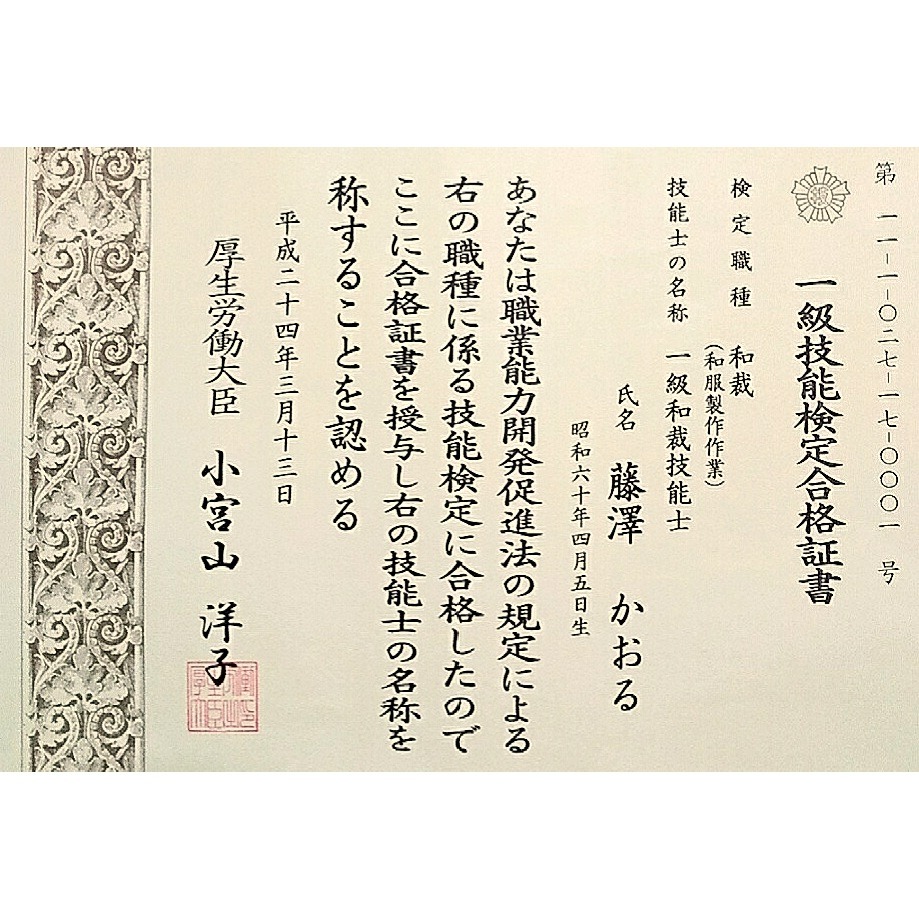 第一一-一-〇二七-一七-〇〇〇一号
一級技能検定合格証書
検定職種 和裁
(和服製作作業)
技能士の名称 一級和裁技能士
氏名 藤澤 かおる
昭和六十年四月五日生
あなたは職業能力開発促進法の規定による
右の職種に係る技能検定に合格したので
ここに合格証書を授与し右の技能士の名称を
称することを認める
平成二十四年三月十三日
厚生労働大臣 小宮山 洋子